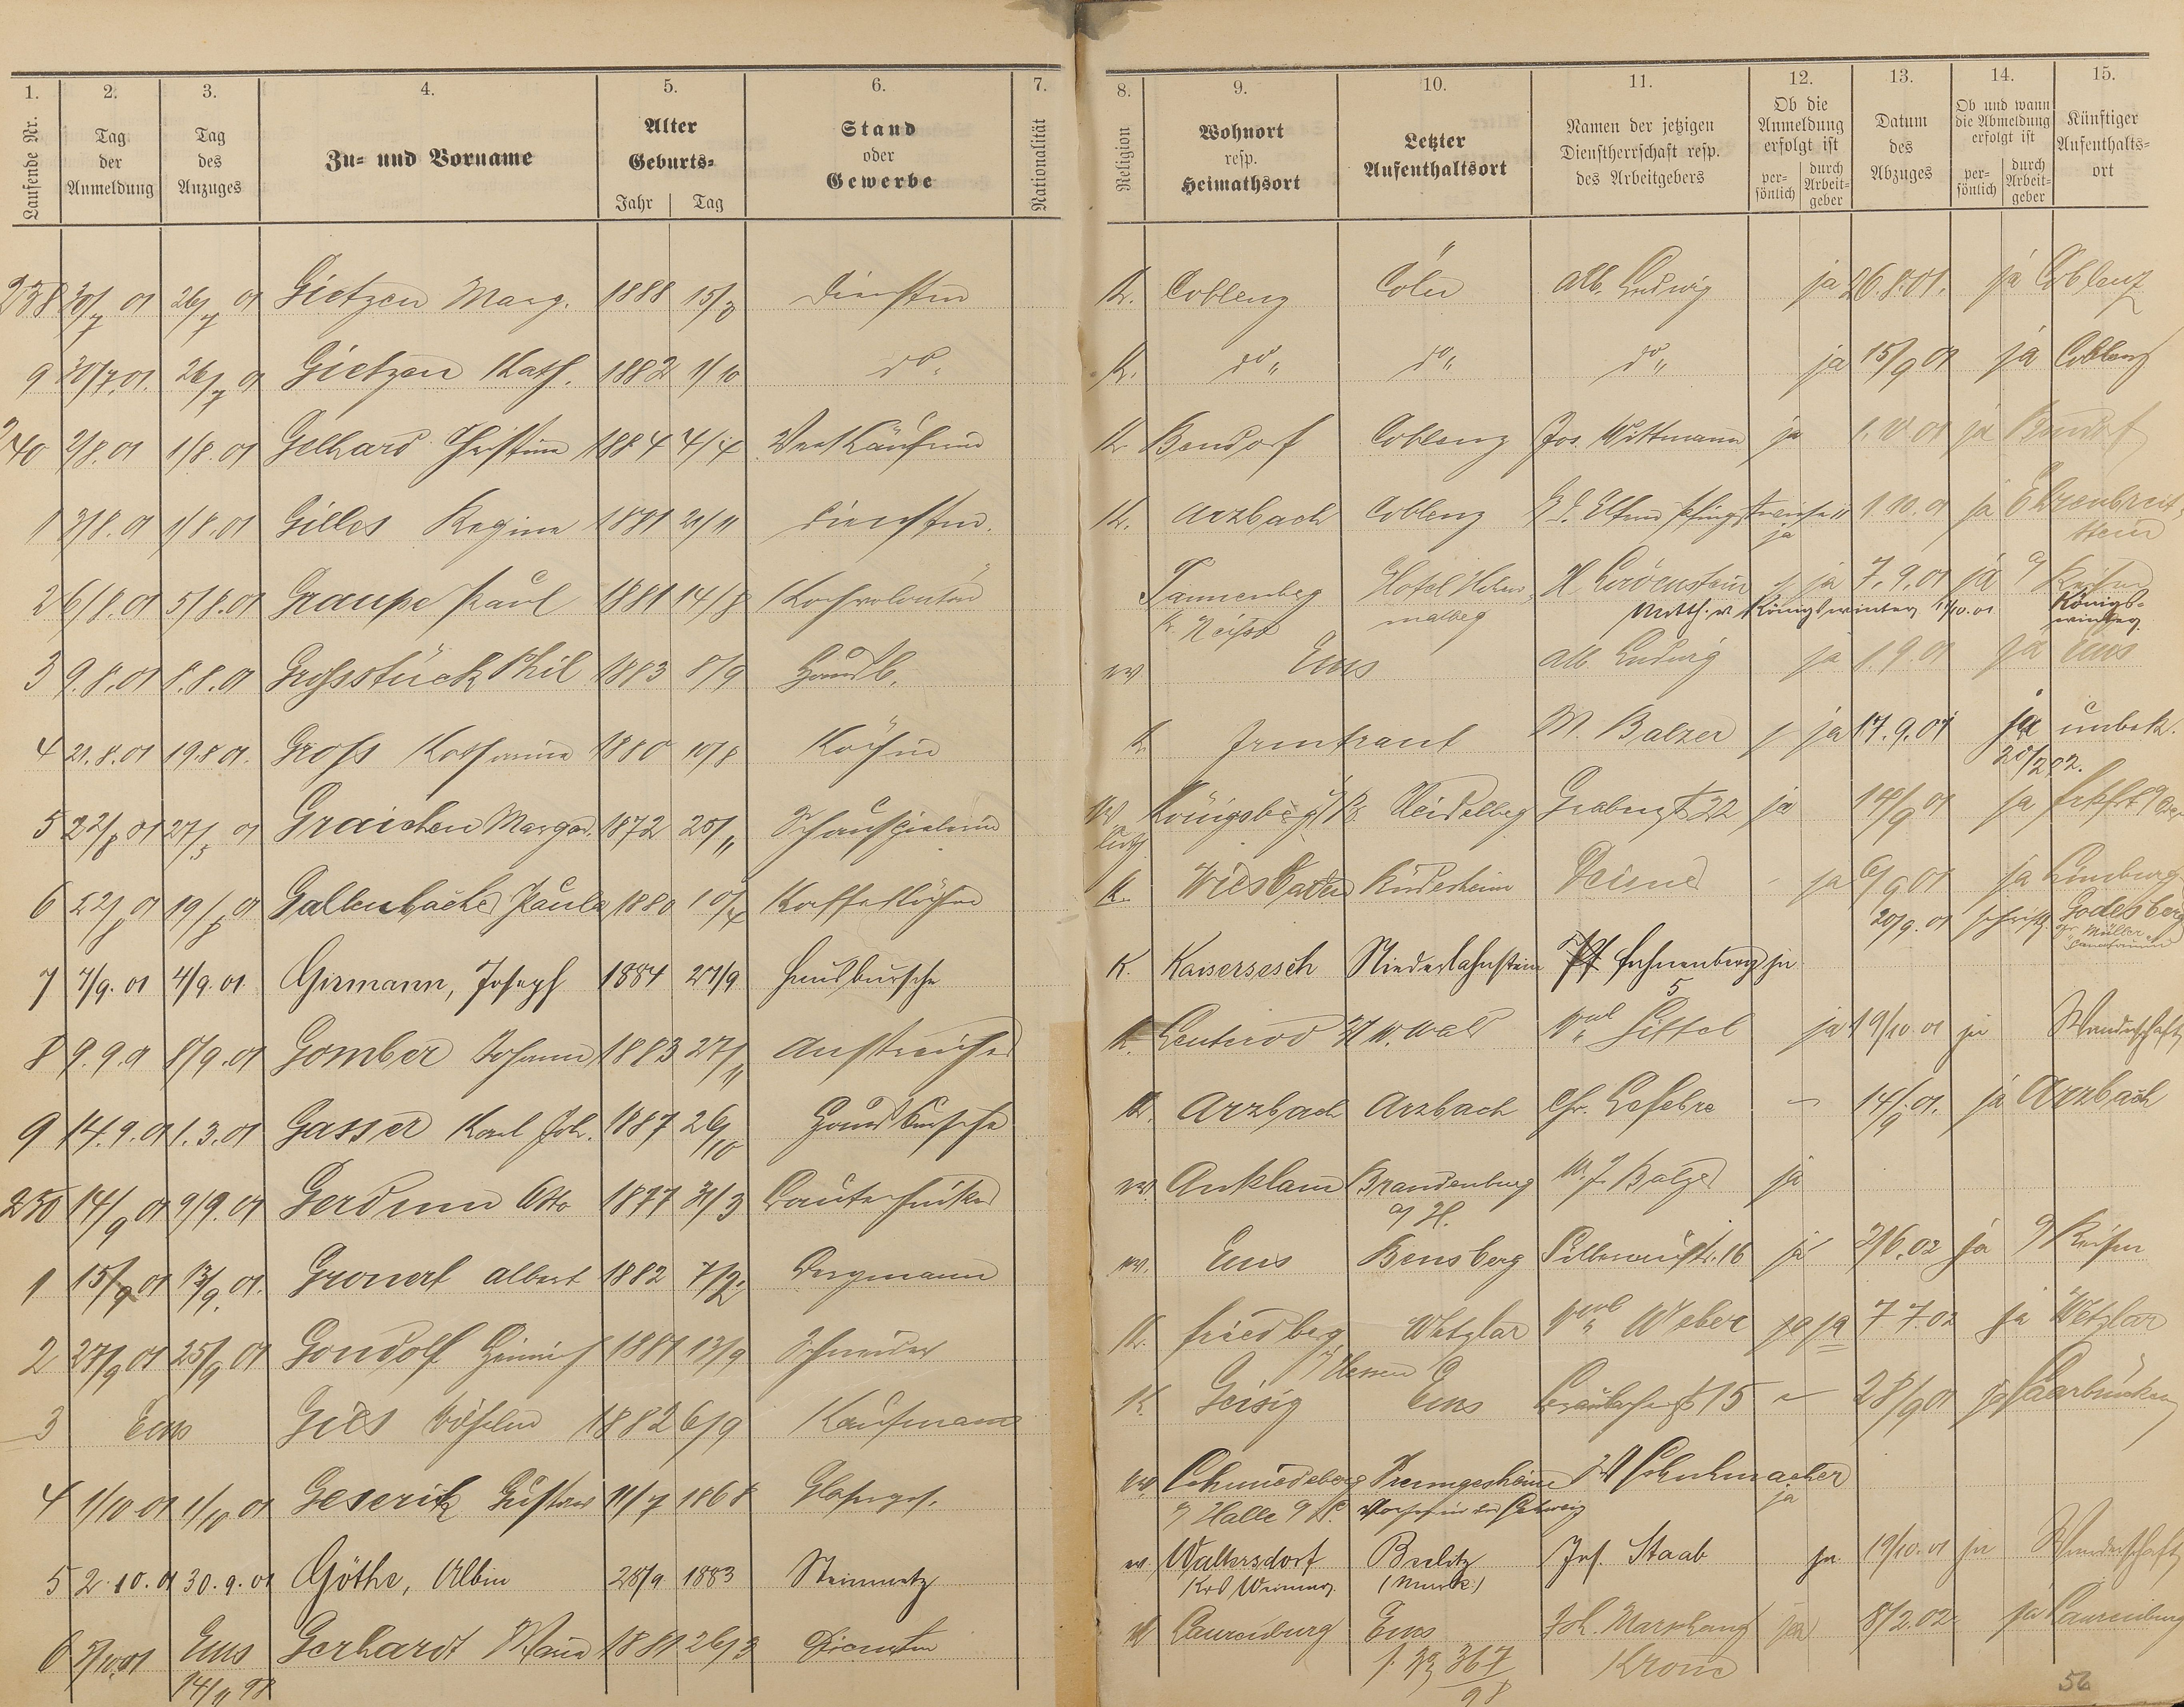 1. 2. 3. 4. 5. 6. 7. 8. 9. 10. 11. 12. 13. 14. 15.
Laufende Nr.
Tag der Anmeldung
Tag des Anzuges
Zu- und Vorname
Alter Geburts-
Jahr Tag
Stand oder Gewerbe
Nationalität
Religion
Wohnort resp. Heimathsort
Letzter Aufenthaltsort
Namen der jetzigen Dienstherrschaft resp. des Arbeitgebers
Ob die Anmeldung erfolgt ist
per-sönlich durch Arbeit-geber
Datum des Abzuges
Ob und wann die Abmeldung erfolgt ist
per-sönlich durch Arbeit-geber
Künftiger Aufenthalts-ort
238 30/7 01 26/7 01 Gietzen Marg. 1888 15/3 K. Coblenz Cöln Alb. Ludwig ja 26.8.01. ja Coblenz
9 30/7.01. 26/7 01 Gietzen Kath. 1882 1/10 do. K. do " do " do " ja 15/9 01 ja Coblenz
240 2/8.01 1/8.01 Gelhard Christine 1884 4/4 Verkäuferin K. Bendorf Coblenz Jos. Wittmann ja 01 ja Bendorf
1 3/8.01 1/8.01 Gilles Regine 1881 21/11 K. Arzbach Coblenz ja 1.10.01 ja Ehrenbreit-
stein
2 6/8.01 5/8.01 Graupe Paul 1881 14/8 Kochvolontär Tannenberg Hotel H. Löwenstein ja 7.9.01 ja
K. Neisse malberg Königswinter 1/10.01 Königs-
winter.
3 9.8.01 8.8.01 Grossstück Phil 1883 8/9 Hausb. ev Ems Alb. Ludwig ja 1.9.01 ja Ems
4 21.8.01 19.8.01. Gross Katharina 1880 10/8 Köchin K. Irmtraut M. Balzer ja 17.9.01 ja unbek.
20/2 02.
5 22/8 01 27/5 01 Graichen Margar. 1872 25/11 Schauspielerin Königsberg i/Pr Heidelberg Grabengst 22 ja 01 ja
6 22/8 01 19/8 01 Gallenbacher Paula 1880 10/4 Kaffeeköchin K. Wiesbaden Rüdesheim ja 6/9 01 ja Limburg
20/9.01 schriftl. Godesberg
Müller
7 7/9.01 4/9.01. Girmann, Joseph 1884 27/9 Hausbursche K. Kaisersesch Niederlahnstein ja
8 9.9.01 8/9.01 Gomber Johann 1883 27/11 Anstreicher K. Leuterod W.Wald ja 19/10.01 ja Wanderschaft
9 14.9.01 1.3.01 Gasser Karl Joh. 1887 26/10 Hausbursche K. Arzbach Arzbach Chr. Lefebre – 14/9 01. ja Arzbach
250 14/9 01 9/9.01 Otto 1877 31/3 ev. Anklam Brandenburg M. J. Balzer ja
a/ H.
1 15/9 01 13/9.01. Gronert Albert 1882 7/2. Bergmann ev. Ems Bensberg 16 ja 2/6.02 ja
2 27/9 01 25/9 01 Gondolf Heinrich 1881 13/9 Schneider K. Friedberg Wetzlar Weber ja ja 7 7 02 ja Wetzlar
i/Hessen
3 Ems Gies Wilhelm 1882 6/9 Kaufmann K. Geisig Ems 15 – 28/9 01 ja Saarbrücken
4 1/10 01 1/10 01 Geserik Gustav 11/7 1868 Schmiedeberg W Schuhmacher
a/ Halle a/S. Schweiz ja
5 2.10.01 30.9.01 Göthe, Albin 28/9 1883 Steinmetz ev. Waltersdorf Beelitz Jos. Staab ja 19/10.01 ja Wanderschaft
Krs Weimar (Mark.)
6 Ems Gerhardt 1881 26/3 Laurenburg Ems ja 8/2.02 ja Laurenburg
14/11 98 367/98 Krone
56